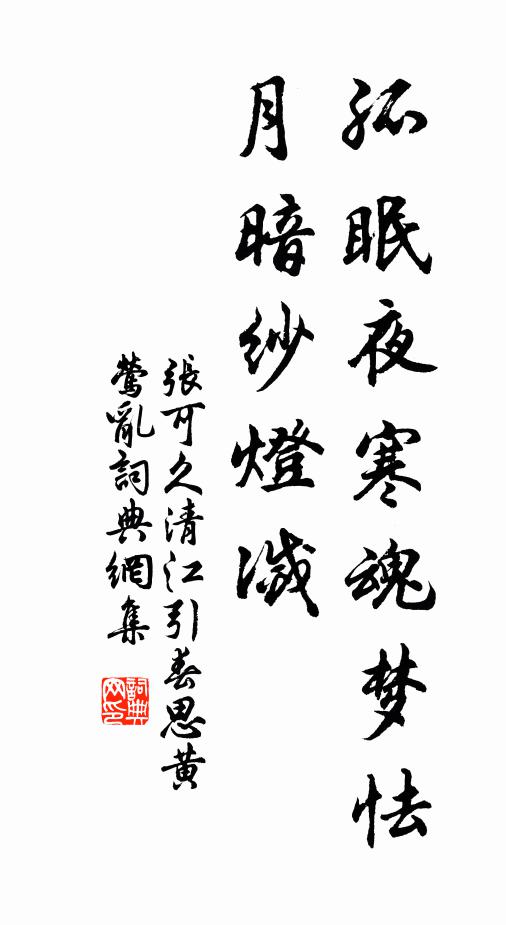 孤眠夜寒魂梦怯
月暗纱燈滅
張可久清江引春思黄
鶯亂詞典網集
詞典網印